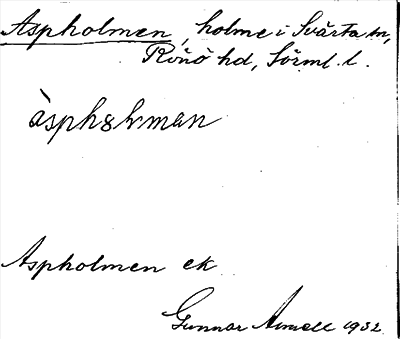 Aspholmen, holme i Svärta sn,
Rönö hd, Sörml. l.
Aspholmen ek
Gunnar 1932